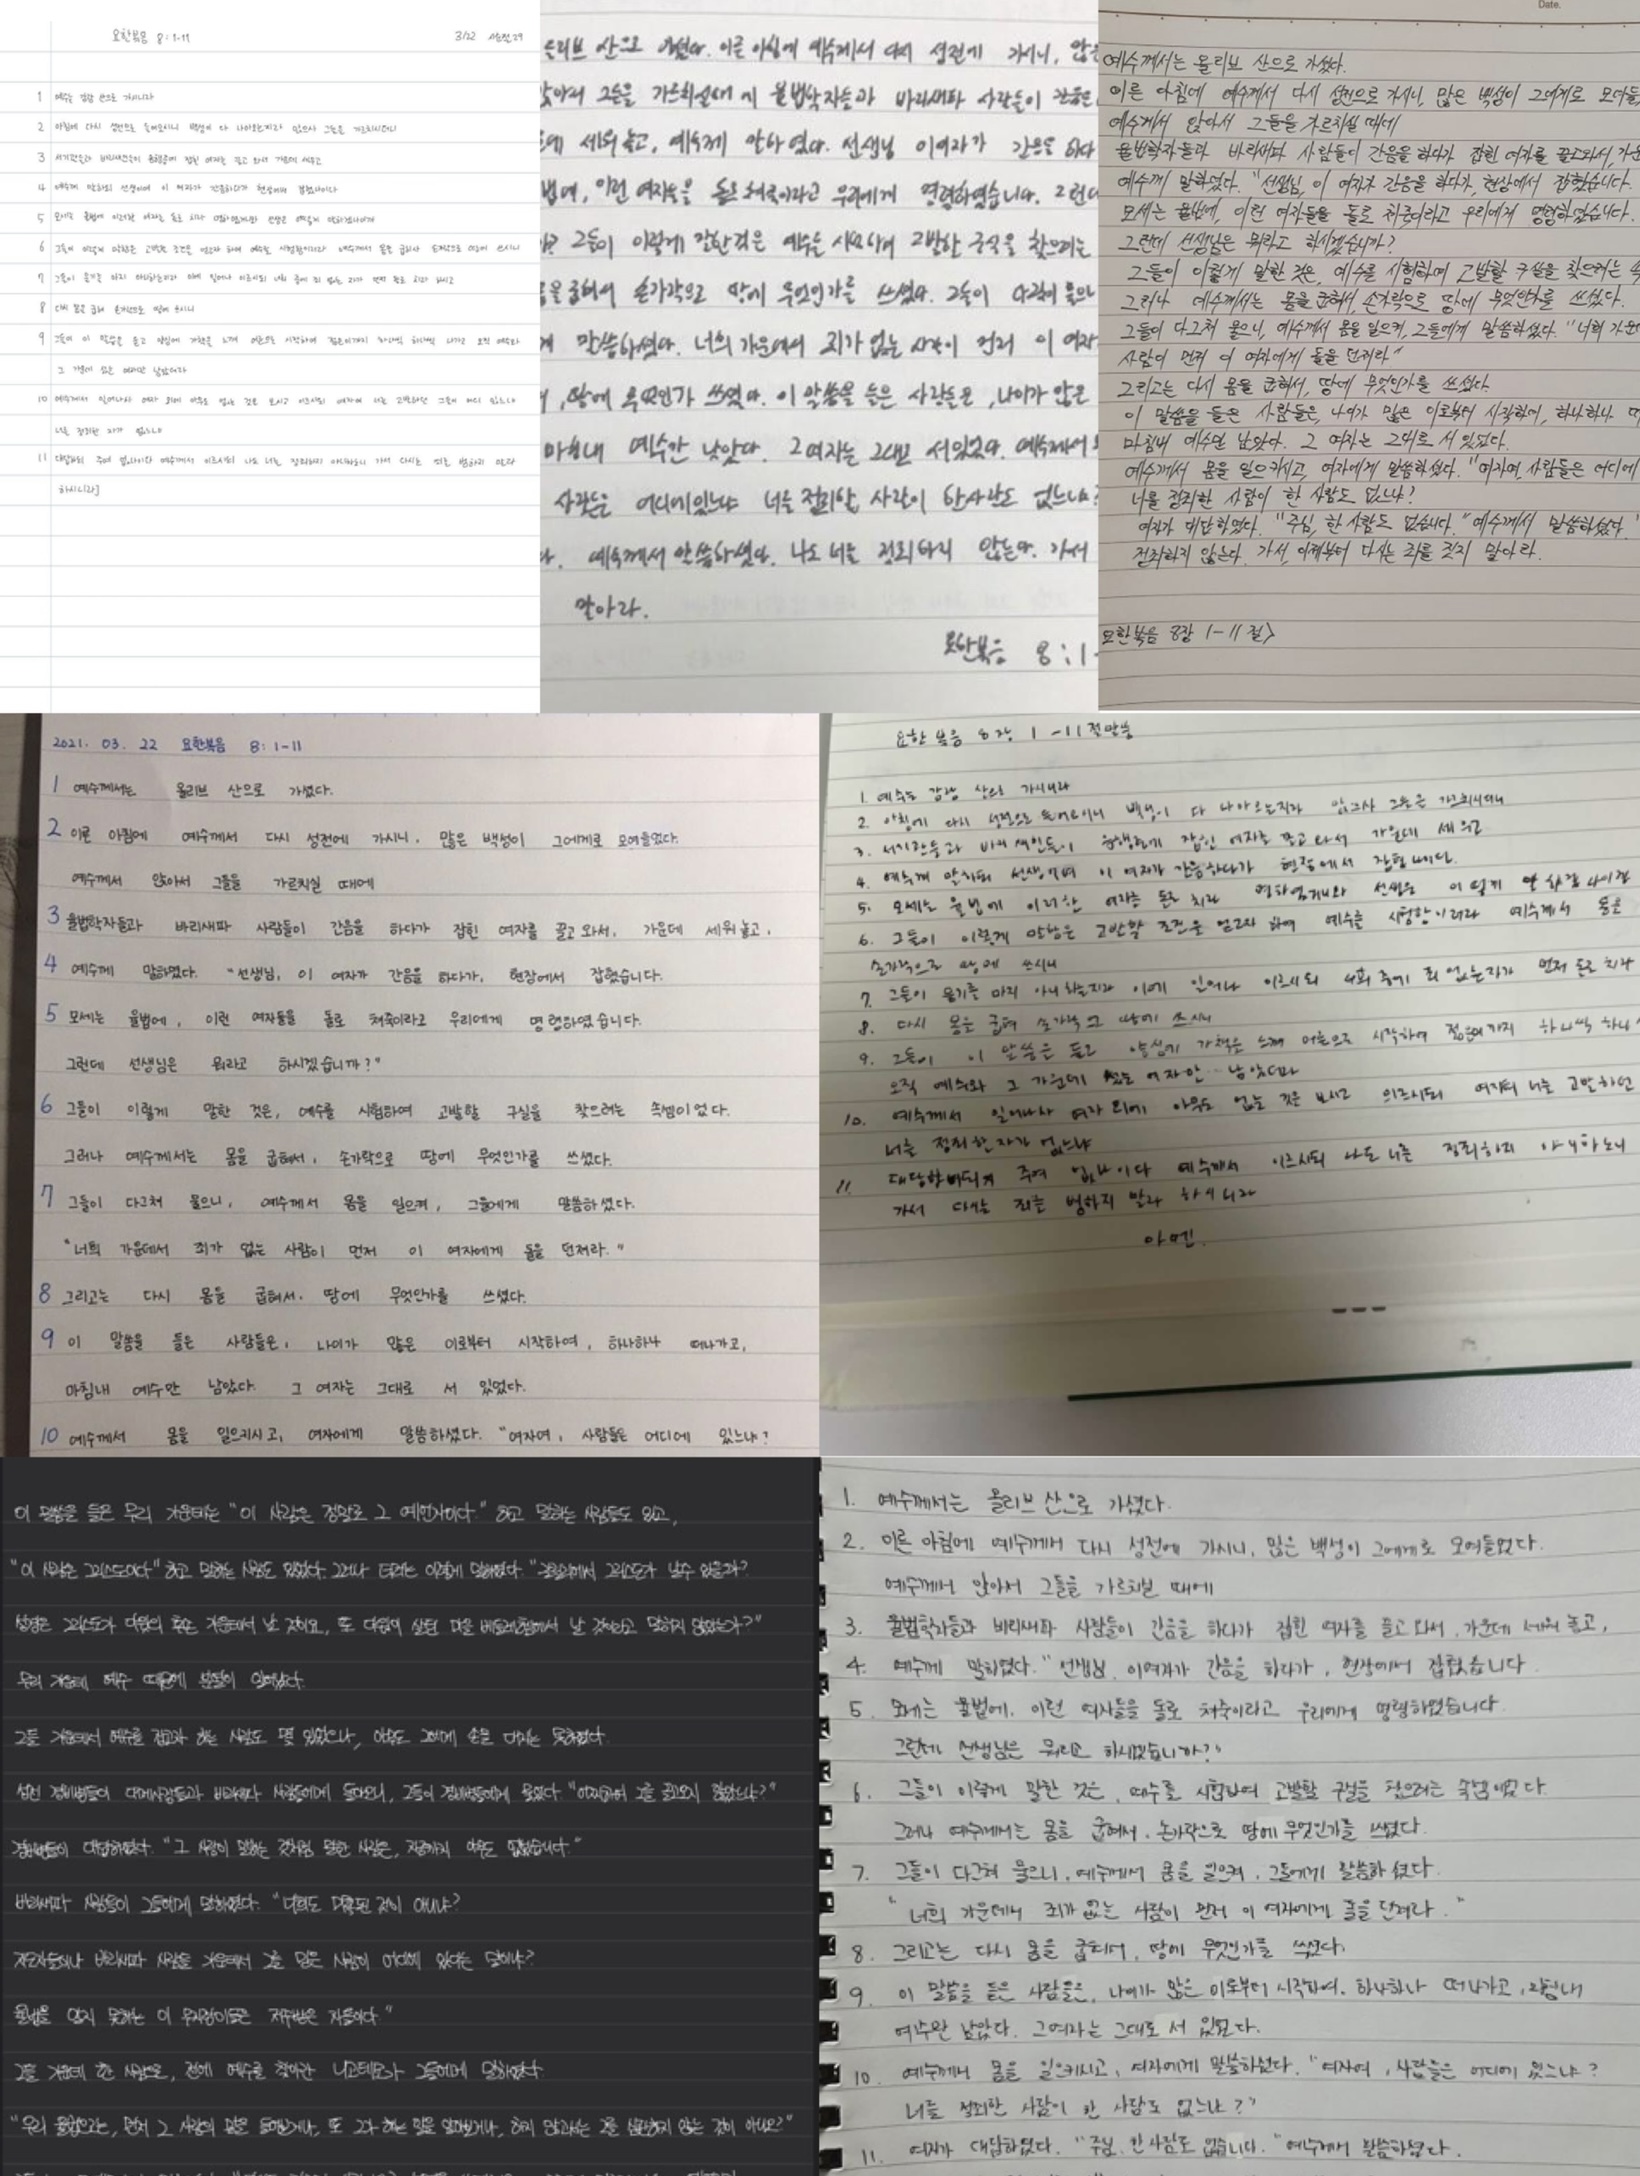 요한복음 8:1-11
3/22
1 예수는 감람 산으로 가시니라
2 아침에 다시 성전으로 들어오시니 백성이 다 나아오는지라 앉으사 그들을 가르치시더니
3 서기관들과 바리새인들이 음행중에 잡힌 여자를 끌고 와서 가운데 세우고
4 예수께 말하되 선생이여 이 여자가 간음하다가 현장에서 잡혔나이다
5 모세는 율법에 이러한 여자를 돌로 치라 명하였거니와 선생은 어떻게 말하겠나이까
6 그들이 이렇게 말함은 고발할 조건을 얻고자 하여 예수를 시험함이러라 예수께서 몸을 굽히사 손가락으로 땅에 쓰시니
7 그들이 묻기를 마지 아니하는지라 이에 일어나 이르시되 너희 중에 죄 없는 자가 먼저 돌로 치라 하시고
8 다시 몸을 굽혀 손가락으로 땅에 쓰시니
9 그들이 이 말씀을 듣고 양심에 가책을 느껴 어른으로 시작하여 젊은이까지 하나씩 하나씩 나가고 오직 예수와
그 가운데 섰는 여자만 남았더라
10 예수께서 일어나사 여자 외에 아무도 없는 것을 보시고 이르시되 여자여 너를 고발하던 그들이 어디 있느냐
너를 정죄한 자가 없느냐
11 대답하되 주여 없나이다 예수께서 이르시되 나도 너를 정죄하지 아니하노니 가서 다시는 죄를 범하지 말라
하시니라]
산으로 가셨다. 이른 아침에 예수께서 다시 성전에 가시니, 많은
앉아서 그들을 가르치실 때에 율법학자들과 바리새파 사람들이 간음을
세워 놓고, 예수께 말하였다. 선생님 이여자가 간음을 하다
이런 여자들을 돌로 쳐죽이라고 우리에게 명령하였습니다. 그런데
그들이 이렇게 말한것은 예수를 시험하여 고발할 구실을 찾으려는
굽혀서 손가락으로 땅에 무엇인가를 쓰셨다. 그들이 다그쳐 물으니
말씀하셨다. 너희 가운데서 죄가 없는 사람이 먼저 이 여자
, 땅에 무엇인가 쓰셨다. 이 말씀을 들은 사람들은, 나이가 많은
마침내 예수만 남았다. 그여자는 그대로 서있었다. 예수께서
사람들은 어디에있느냐 너를 정죄할 사람이 한사람도 없느냐?
예수께서 말씀하셨다. 나도 너를 정죄하지 않는다. 가서
말아라.
요한복음 8:1-
Date.
예수께서는 올리브 산으로 가셨다.
이른 아침에 예수께서 다시 성전으로 가시니, 많은 백성이 그에게로 모여들
예수께서 앉아서 그들을 가르치실 때에
율법학자들과 바리새파 사람들이 간음을 하다가 잡힌 여자를 끌고와서, 가운
예수께 말하였다. "선생님, 이 여자가 간음을 하다가, 현장에서 잡혔습니다.
모세는 율법에, 이런 여자들을 돌로 쳐죽이라고 우리에게 명령하였습니다.
그런데 선생님은 뭐라고 하시겠습니까?
그들이 이렇게 말한 것은, 예수를 시험하여 고발할 구실을 찾으려는 속
그러나 예수께서는 몸을 굽혀서, 손가락으로 땅에 무엇인가를 쓰셨다.
그들이 다그쳐 물으니, 예수께서 몸을 일으켜, 그들에게 말씀하셨다. "너희 가운
사람이 먼저 이 여자에게 돌을 던져라"
그리고는 다시 몸을 굽혀서, 땅에 무엇인가를 쓰셨다
이 말씀을 들은 사람들은, 나이가 많은 이로부터 시작하여, 하나하나 떠
마침내 예수만 남았다. 그 여자는 그대로 서 있었다.
예수께서 몸을 일으키시고, 여자에게 말씀하셨다. "여자여, 사람들은 어디에
너를 정죄한 사람이 한 사람도 없느냐?
여자가 대답하였다. "주님, 한 사람도 없습니다." 예수께서 말씀하셨다. "
정죄하지 않는다. 가서, 이제부터 다시는 죄를 짓지 말아라.
요한복음 8장 1-11절>
2021. 03. 22 요한복음 8:1-11
1 예수께서는 올리브 산으로 가셨다.
2 이른 아침에 예수께서 다시 성전에 가시니, 많은 백성이 그에게로 모여들었다.
예수께서 앉아서 그들을 가르치실 때에
3 율법학자들과 바리새파 사람들이 간음을 하다가 잡힌 여자를 끌고 와서, 가운데 세워 놓고,
4 예수께 말하였다. "선생님, 이 여자가 간음을 하다가, 현장에서 잡혔습니다.
5 모세는 율법에, 이런 여자들을 돌로 쳐죽이라고 우리에게 명령하였습니다.
그런데 선생님은 뭐라고 하시겠습니까?"
6 그들이 이렇게 말한 것은, 예수를 시험하여 고발할 구실을 찾으려는 속셈이었다.
그러나 예수께서는 몸을 굽혀서, 손가락으로 땅에 무엇인가를 쓰셨다.
7 그들이 다그쳐 물으니, 예수께서 몸을 일으켜, 그들에게 말씀하셨다.
"너희 가운데서 죄가 없는 사람이 먼저 이 여자에게 돌을 던져라."
8 그리고는 다시 몸을 굽혀서, 땅에 무엇인가를 쓰셨다.
9 이 말씀을 들은 사람들은, 나이가 많은 이로부터 시작하여, 하나하나 떠나가고,
마침내 예수만 남았다. 그 여자는 그대로 서 있었다.
10 예수께서 몸을 일으키시고, 여자에게 말씀하셨다. "여자여, 사람들은 어디에 있느냐?
요한복음 8장 1-11절말씀
1. 예수는 감람 산으로 가시니라
2. 아침에 다시 성전으로 들어오시니 백성이 다 나아오는지라 앉으사 그들을 가르치시더니
3. 서기관들과 바리새인들이 음행중에 잡힌 여자를 끌고 와서 가운데 세우고
4. 예수께 말하되 선생이여 이 여자가 간음하다가 현장에서 잡혔나이다.
5. 모세는 율법에 이러한 여자를 돌로 치라 명하였거니와 선생은 어떻게 말하겠나이까
6. 그들이 이렇게 말함은 고발할 조건을 얻고자 하여 예수를 시험함이러라 예수께서 몸을
손가락으로 땅에 쓰시니
7. 그들이 묻기를 마지 아니하는지라 이에 일어나 이르시되 너희 중에 죄 없는자가 먼저 돌로 치라
8. 다시 몸을 굽혀 손가락으로 땅에 쓰시니
9. 그들이 이 말씀을 듣고 양심에 가책을 느껴 어른으로 시작하여 젊은이까지 하나씩 하나
오직 예수와 그 가운데 섰는 여자만 남았더라
10. 예수께서 일어나사 여자 외에 아무도 없는 것을 보시고 이르시되 여자여 너를 고발하던
너를 정죄한 자가 없느냐
11. 주여 없나이다 예수께서 이르시되 나도 너를 정죄하지 아니하노니
가서 다시는 죄를 범하지 말라 하시니라
아멘.
이 말씀을 들은 무리 가운데는 "이 사람은 정말로 그 예언자이다." 하고 말하는 사람들도 있고,
"이 사람은 그리스도이다" 하고 말하는 사람도 있었다. 그러나 더러는 이렇게 말하였다. "갈릴리에서 그리스도가 날수 있을까?
성경은 그리스도가 다윗의 후손 가운데서 날 것이요, 또 다윗이 살던 마을 베들레헴에서 날 것이라고 말하지 않았는가?"
무리 가운데 예수 때문에 분열이 일어났다.
그들 가운데서 예수를 잡고자 하는 사람도 몇 있었으나, 아무도 그에게 손을 대지는 못하였다.
성전 경비병들이 대제사장들과 바리새파 사람들에게 돌아오니, 그들이 경비병들에게 물었다. "어찌하여 그를 끌고오지 않았느냐?"
경비병들이 대답하였다. "그 사람이 말하는 것처럼 말한 사람은, 지금까지 아무도 없었습니다."
바리새파 사람들이 그들에게 말하였다. "너희도 미혹된 것이 아니냐?
지도자들이나 바리새파 사람들 가운데서 그를 믿은 사람이 어디에 있다는 말이냐?
율법을 알지 못하는 이 무지렁이들은 저주받은 자들이다."
그들 가운데 한 사람으로, 전에 예수를 찾아간 니고데모가 그들에게 말하였다.
"우리 율법으로는, 먼저 그 사람의 말을 들어보거나, 또 그가 하는 일을 알아보거나, 하지 않고서는 그를 심판하지 않는 것이 아니오?"
1. 예수께서는 올리브 산으로 가셨다.
2. 이른 아침에 예수께서 다시 성전에 가시니, 많은 백성이 그에게로 모여들었다.
예수께서 앉아서 그들을 가르치실 때에
3. 율법학자들과 바리새파 사람들이 간음을 하다가 잡힌 여자를 끌고 와서, 가운데 세워 놓고,
4. 예수께 말하였다. "선생님, 이여자가 간음을 하다가, 현장에서 잡혔습니다.
5. 모세는 율법에. 이런 여자들을 돌로 쳐죽이라고 우리에게 명령하였습니다.
그런데 선생님은 뭐라고 하시겠습니까?"
6. 그들이 이렇게 말한 것은, 예수를 시험하여 고발할 구실을 찾으려는 속셈이었다.
그러나 예수께서는 몸을 굽혀서, 손가락으로 땅에 무엇인가를 쓰셨다.
7. 그들이 다그쳐 물으니, 예수께서 몸을 일으켜, 그들에게 말씀하셨다.
"너희 가운데서 죄가 없는 사람이 먼저 이 여자에게 돌을 던져라."
8. 그리고는 다시 몸을 굽혀서, 땅에 무엇인가를 쓰셨다.
9. 이 말씀을 들은 사람들은, 나이가 많은 이로부터 시작하여, 하나하나 떠나가고, 마침내
예수만 남았다. 그여자는 그대로 서 있었다.
10. 예수께서 몸을 일으키시고, 여자에게 말씀하셨다. "여자여, 사람들은 어디에 있느냐?
너를 정죄한 사람이 한 사람도 없느냐?"
11. 여자가 대답하였다. "주님, 한 사람도 없습니다." 예수께서 말씀하셨다.